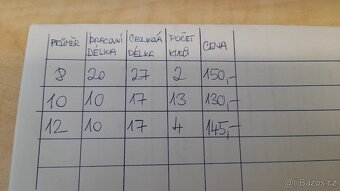 PRŮMĚR PRACOVNÍ DÉLKA CELKOVÁ DÉLKA POČET KUSŮ CENA
8 20 27 2 150,-
10 10 17 13 130,-
12 10 17 4 145,-
© Bazos.cz